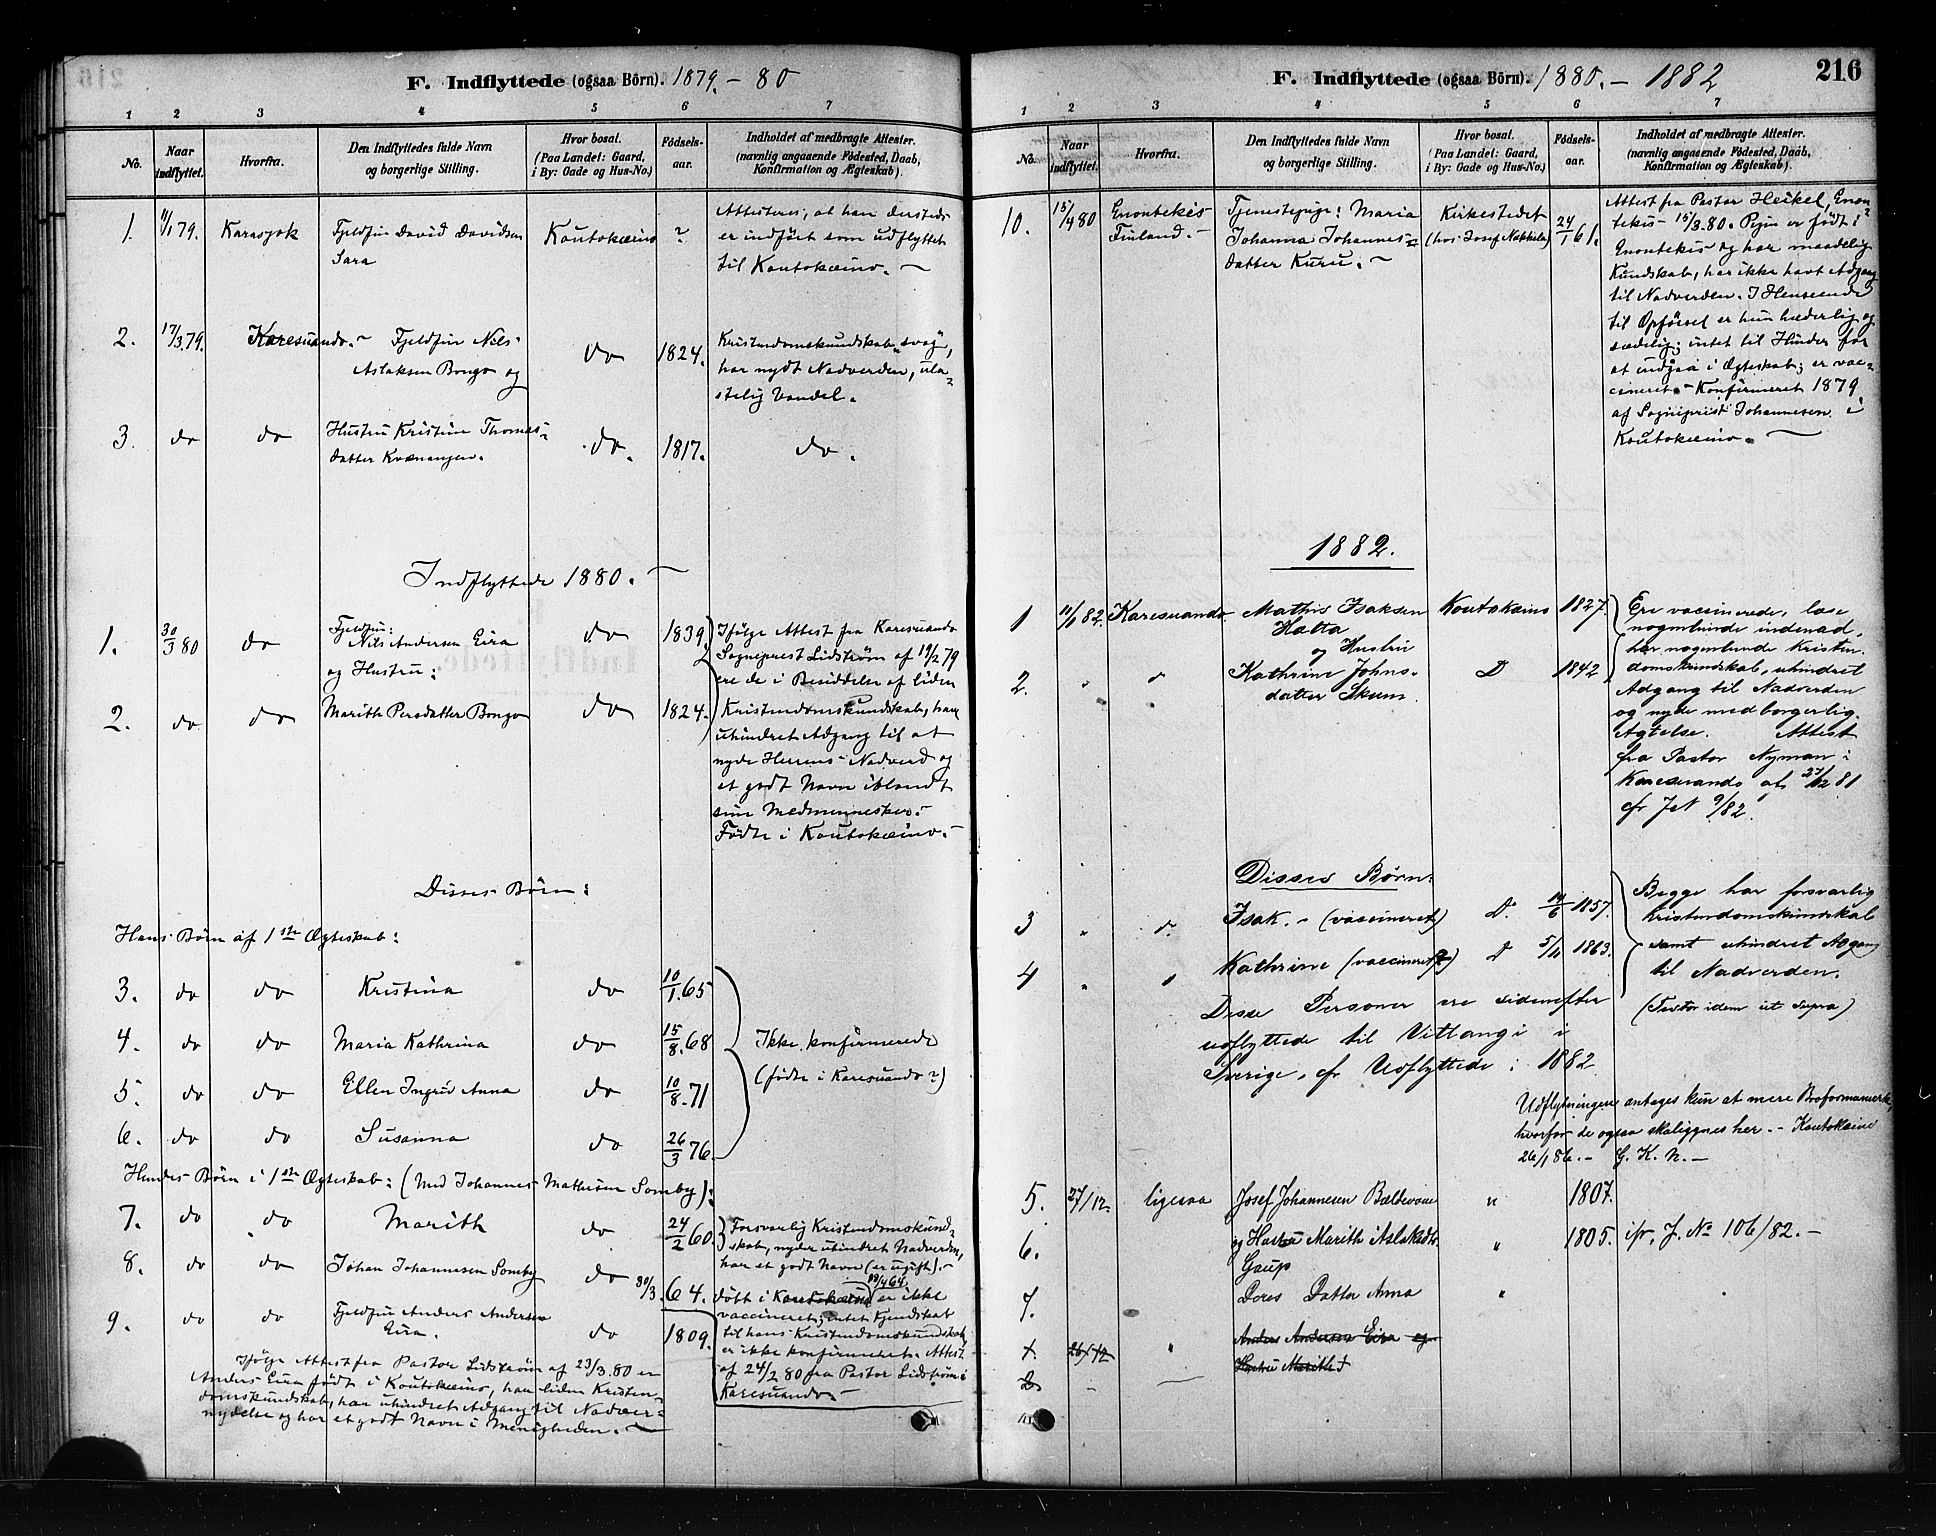 F. Indflyttede (ogsaa Börn). 1879. - 80
1 2 3 4 5 6 7
No. Naar indflyttet. Hvorfra. Den Indflyttedes fulde Navn og borgerlige Stilling. Hvor bosat. (Paa Landet: Gaard, i By: Gade og Hus-No.) Födsels-aar. Indholdet af medbragte Attester. (navnlig angaaende Födested, Daab, Konfirmation og Ægteskab).
1. 11/1 79. Karasjok Fjeldfin David Davidsen Koutokæino ? Attesteres, at han dersteds
Sara er indført som udflyttet
til Koutokæino. -
2. 17/3 79. Karesuando. - Fjeldfin Nils do 1824. Kristendomskundskab "svag",
Aslaksen Bongo og har nydt Nadverden, ula-
stelig Vandel.
3. do do Hustru Kristine Thomas- do. 1817. do.
datter Kvænangen.
Indflyttede 1880. -
1. 30/3 80 do Fjeldfin: do 1839 Ifølge Attest fra Karesuando
Nils Andersen Eira Sogneprest Lidstrøm af 19/2 79
og Hustru: ere de i Besiddelse af liden
2. do do Marith Persdatter Bongo do 1824. Kristendomskundskab, have
uhindret Adgang til at
nyde Herrens Nadverd og
et godt Navn iblandt
sine Medmennesker. -
Fødte i Koutokæino. -
Disses Børn:
Hans Børn af 1ste Ægteskab:
3. do do Kristina do 10/1. 65
4. do do Maria Kathrina do 15/8. 68 Ikke konfirmerede
5. do do Ellen Ingrid Anna do 10/8. 71 (fødte i Karesuando?)
6. do do Susanna do 26/3 76.
Hendes Børn i 1ste Ægteskab: (med Johannes Mathisen Somby):
7. do do Marith do 24/2 60. Forsvarlig Kristendomskund-
skab, nyder uhindret Nadverden,
har et godt Navn (er ugift). -
8. do do Johan Johannesen Somby do 30/3. 64. døbt i Koutokæino er ikke
vaccineret; intet Kjendskab
9. do do Fjeldfin Anders Andersen do 1809. til hans Kristendomskundskab,
Eira. er ikke konfirmeret. Attest
af 24/2 80 fra Pastor Lidstrøm i
Karesuando. -
Ifølge Attest fra Pastor Lidstrøm af 23/3. 80 er
Anders Eira født i Koutokæino, har liden Kristen-
domskundskab, har uhindret Adgang til Nadver-
nydelse og har et godt Navn i Menigheden. -
F. Indflyttede (ogsaa Börn). 1880. - 1882 216
1 2 3 4 5 6 7
No. Naar indflyttet. Hvorfra. Den Indflyttedes fulde Navn og borgerlige Stilling. Hvor bosat. (Paa Landet: Gaard, i By: Gade og Hus-No.) Födsels-aar. Indholdet af medbragte Attester. (navnlig angaaende Födested, Daab, Konfirmation og Ægteskab).
10. 15/4 80 Enontekis Tjenestepige: Maria Kirkestedet 24/1 61. Attest fra Pastor Heikel, Enon-
Finland. - Johanna Johannes- (hos Josef Nakkela) tekis 15/3. 80. Pigen er født i
datter Kuru. - Enontekis og har maadelig
Kundskab, har ikke havt Adgang
til Nadverden. I Henseende
til Opførsel er hun hæderlig og
sædelig; intet til Hinder for
at indgaa i Ægteskab; er vac-
cineret. - Konfirmeret 1879
af Sogneprest Johannesen i
Koutokæino. -
1882.
1 11/1 82. Karesuando. Mathis Isaksen Koutokæino 1827. Ere vaccinerede, læse
Hætta nogenlunde indenad,
og Hustru har nogenlunde Kristen-
2. " " Kathrine Johns- D 1842 domskundskab, uhindret
datter Skum. Adgang til Nadverden
og nyde medborgerlig
Agtelse. Attest
fra Pastor Nyman i
Karesuando af 27/12 81
cfr JN 9/82.
Disses Børn:
3 " d. Isak. - (vaccineret) D. 14/6 1857. Begge har forsvarlig
Kristendomskundskab
4 " " Kathrine (vaccineret) D 5/11 1863. samt uhindret Adgang
til Nadverden.
Disse Personer ere sidenefter (Testor idem ut supra)
udflyttede til Vittangi i
Sverige, cfr Udflyttede i 1882
Udflytningen antages kun at være Proformaværk,
hvorfor de ogsaa skaliggnes her. - Koutokæino
26/1 86. - G. K. N. -
5. 27/12. ligesaa Josef Johannesen Bældevuome " 1807.
6. og Hustru Marith Aslaksdtr. " 1805. cfr. J. No 106/82. -
Gaup
7. Deres Datter Anna "
1. 26/12 " Anders Andersen Eira og
2. " Hustru Marith